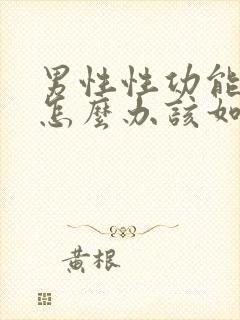 男性性功能
怎麼办該如
黃根